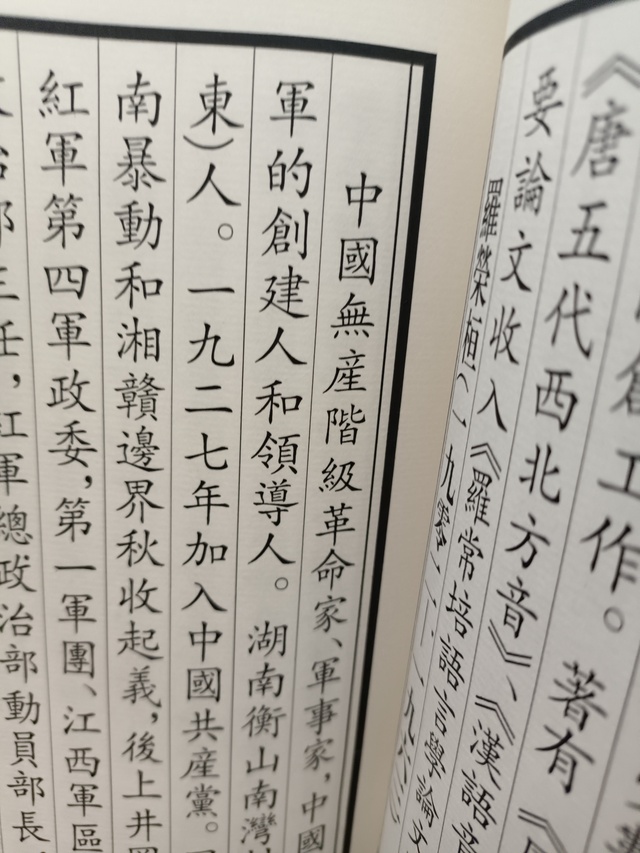 創工作。著有《
《唐五代西北方音》、《漢語音
要論文收入《羅常培語言學論文
羅榮桓(一九零二—一九六三
中國無産階級革命家、軍事家,中國
軍的創建人和領導人。湖南衡山南灣
東)人。一九二七年加入中國共産黨。
南暴動和湘贛邊界秋收起義,後上井
紅軍第四軍政委,第一軍團、江西軍區
治部主任,紅軍總政治部動員部長